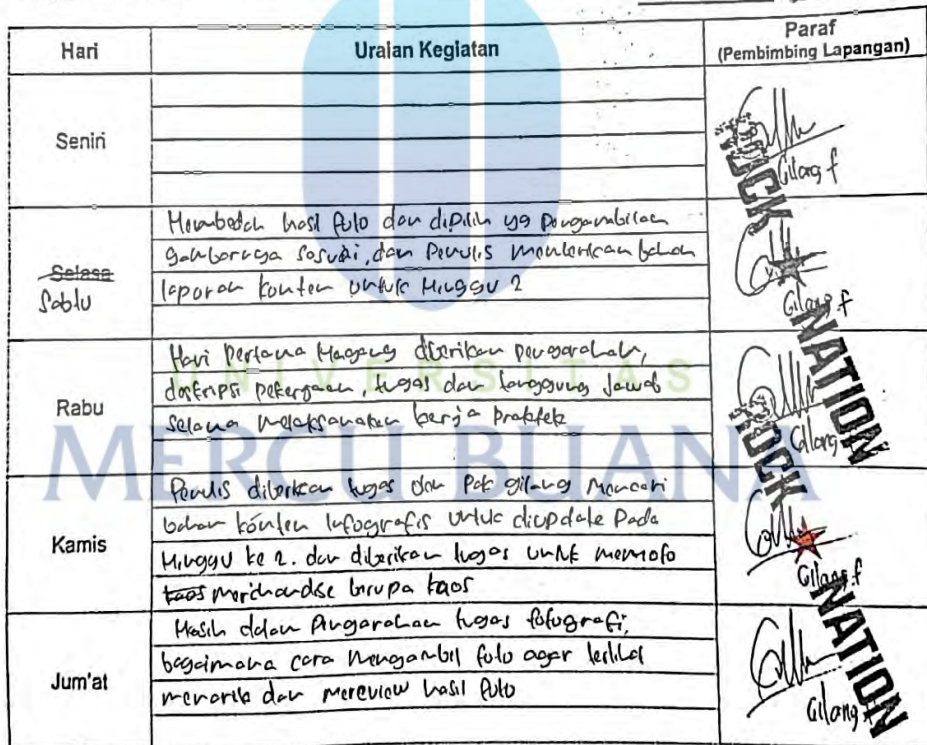 Hari
Uraian Kegiatan
Paraf
(Pembimbing Lapangan)
Senin
Gilang f
Selasa
Sabtu
Membedah hasil foto dan dipilih yg pengambilan
gambarnya sesuai, dan Penulis bahan
laporan konten untuk Minggu 2
Gilang f
Rabu
Hari Pertama Magang diberikan pengarahan,
deskripsi pekerjaan, tugas dan tanggung jawab
selama melaksanakan kerja praktek
Gilang
Kamis
Penulis diberikan tugas dan Pak gilang Mencari
bahan konten infografis untuk diupdate Pada
Minggu ke 2. dan diberikan tugas untuk memoto
kaos merchandise berupa kaos
Gilang f
Jum'at
Masih dalam Pengarahan tugas fotografi,
bagaimana cara Mengambil foto agar terlihat
menarik dan mereview hasil foto
Gilang f
UNIVERSITAS
MERCU BUANA
ROCK NATION
ROCK NATION